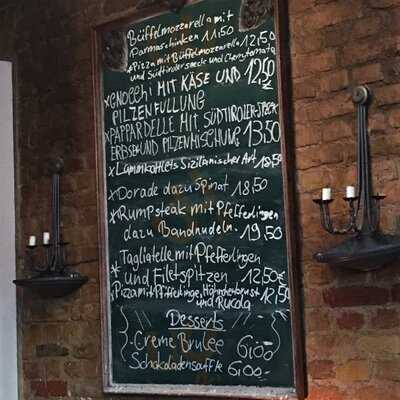 Büffelmozzarella mit
Parmaschinken 11,50
*Pizza mit Büffelmozzarella 12,50
und Südtirolerspeck und Cherrytomate
x GNOCCHI MIT KÄSE UND 12,50
PILZENFÜLLUNG
x PAPPARDELLE MIT SÜDTIROLER-SPECK
ERBSEN UND PILZENMISCHUNG 13,50
x Lammkotlets Sizilianischer Art 18,50
x Dorade dazu Spinat 18,50
x Rumpsteak mit Pfefferlingen
dazu Bandnudeln. 19,50
Tagliatelle mit Pfefferlingen
* und Filetspitzen 12,50€
x Pizza mit Pfifferlinge, Hähnchenbrust
und Rucola 12,50
Desserts
Creme Brulee 6,00
Schokoladensuffle 6,00